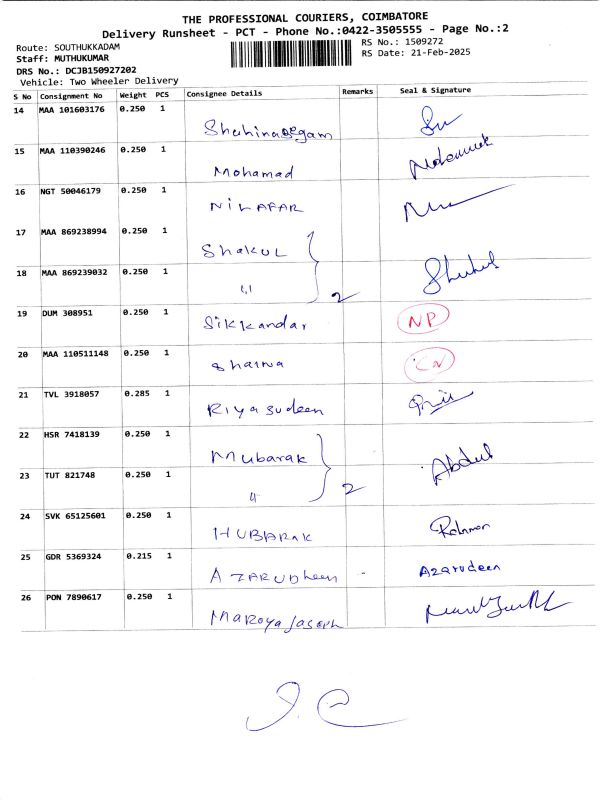 THE PROFESSIONAL COURIERS, COIMBATORE
Delivery Runsheet - PCT - Phone No.:0422-3505555 - Page No.:2
Route: SOUTHUKKADAM RS No.: 1509272
Staff: MUTHUKUMAR RS Date: 21-Feb-2025
DRS No.: DCJB150927202
Vehicle: Two Wheeler Delivery
S No Consignment No Weight PCS Consignee Details Remarks Seal & Signature
14 MAA 101603176 0.250 1
Shahinabegam
15 MAA 110390246 0.250 1
Mohamad
16 NGT 50046179 0.250 1
NILAFAR
17 MAA 869238994 0.250 1
Shakul
18 MAA 869239032 0.250 1
" 2
19 DUM 308951 0.250 1
Sikkandar NP
20 MAA 110511148 0.250 1
CN
21 TVL 3918057 0.285 1
Riyasudeen
22 HSR 7418139 0.250 1
Mubarak Abdul
23 TUT 821748 0.250 1
" 2
24 SVK 65125601 0.250 1
HUBARAK Rahman
25 GDR 5369324 0.215 1
AZARUDheen - Azarudeen
26 PON 7890617 0.250 1
MAROYa Joseph